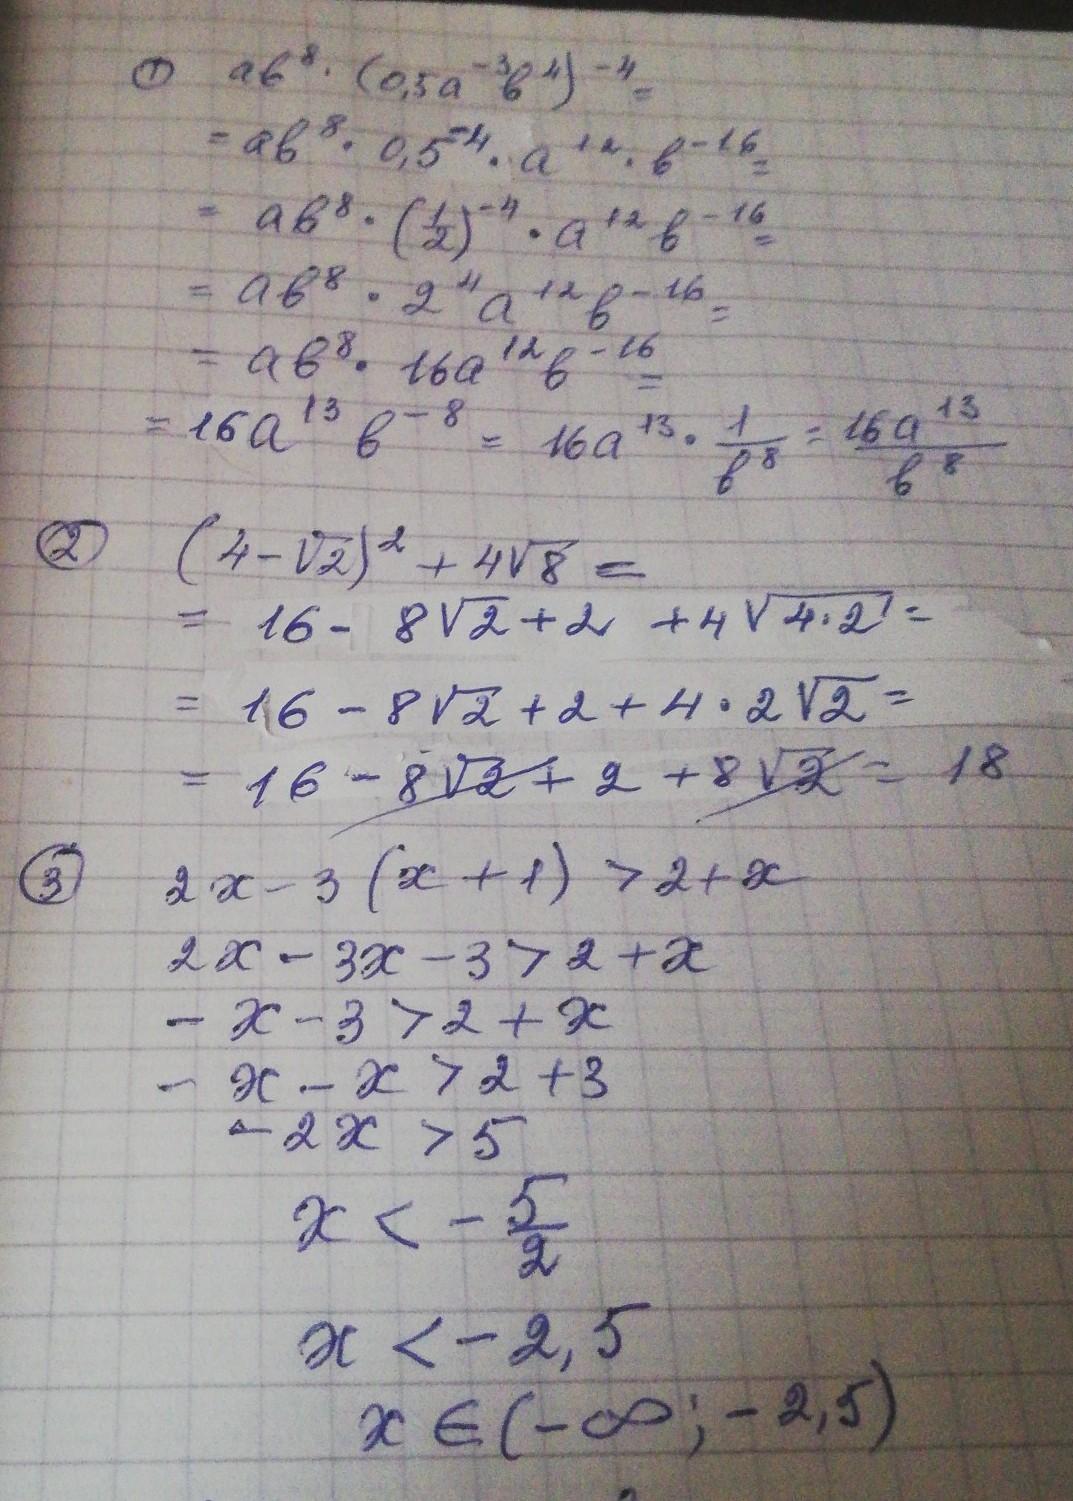 ① ab⁸ · (0,5a⁻³b⁴)⁻⁴ =
= ab⁸ · 0,5⁻⁴ · a¹² · b⁻¹⁶ =
= ab⁸ · (1/2)⁻⁴ · a¹² b⁻¹⁶ =
= ab⁸ · 2⁴ a¹² b⁻¹⁶ =
= ab⁸ · 16a¹² b⁻¹⁶ =
= 16a¹³ b⁻⁸ = 16a¹³ · 1/b⁸ = 16a¹³/b⁸
② (4 - √2)² + 4√8 =
= 16 - 8√2 + 2 + 4√(4·2) =
= 16 - 8√2 + 2 + 4 · 2√2 =
= 16 - 8√2 + 2 + 8√2 = 18
③ 2x - 3(x + 1) > 2 + x
2x - 3x - 3 > 2 + x
- x - 3 > 2 + x
- x - x > 2 + 3
- 2x > 5
x < - 5/2
x < - 2,5
x ∈ (-∞; - 2,5)